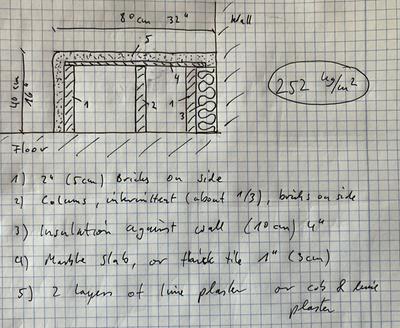 80cm 32"
Wall
5
4
1
2
1
3
40cm
16"
252 kg/m²
Floor
1) 2" (5cm) Bricks on side
2) Colums, intermittent (about 1/3), bricks on side
3) Insulation against wall (10cm) 4"
4) Marble slab, or thick tile 1" (3cm)
5) 2 layers of lime plaster or cob & lime
plaster